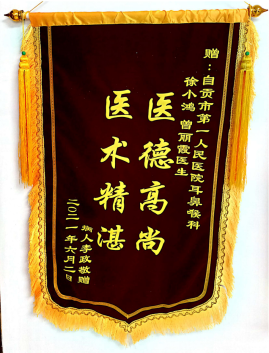 赠：自贡市第一人民医院耳鼻喉科
徐小鸿 曾丽霞医生
医德高尚
医术精湛
病人李政敬赠
二〇二一年六月二日